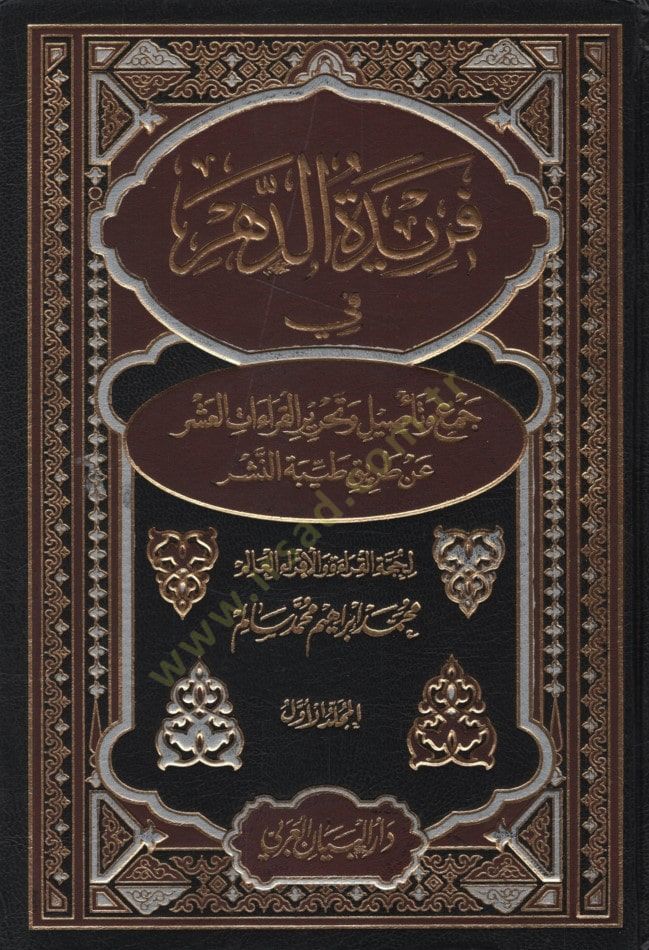 فَرِيدَةُ الدَّهْرِ
فِي
جَمْعِ وَتَأْصِيلِ وَتَحْرِيرِ القِرَاءَاتِ العَشْرِ
عَنْ طَرِيقِ طَيِّبَةِ النَّشْرِ
محمد إبراهيم محمد سالم
المجلد الأول
دار البيان العربي
www.irsad.com.tr